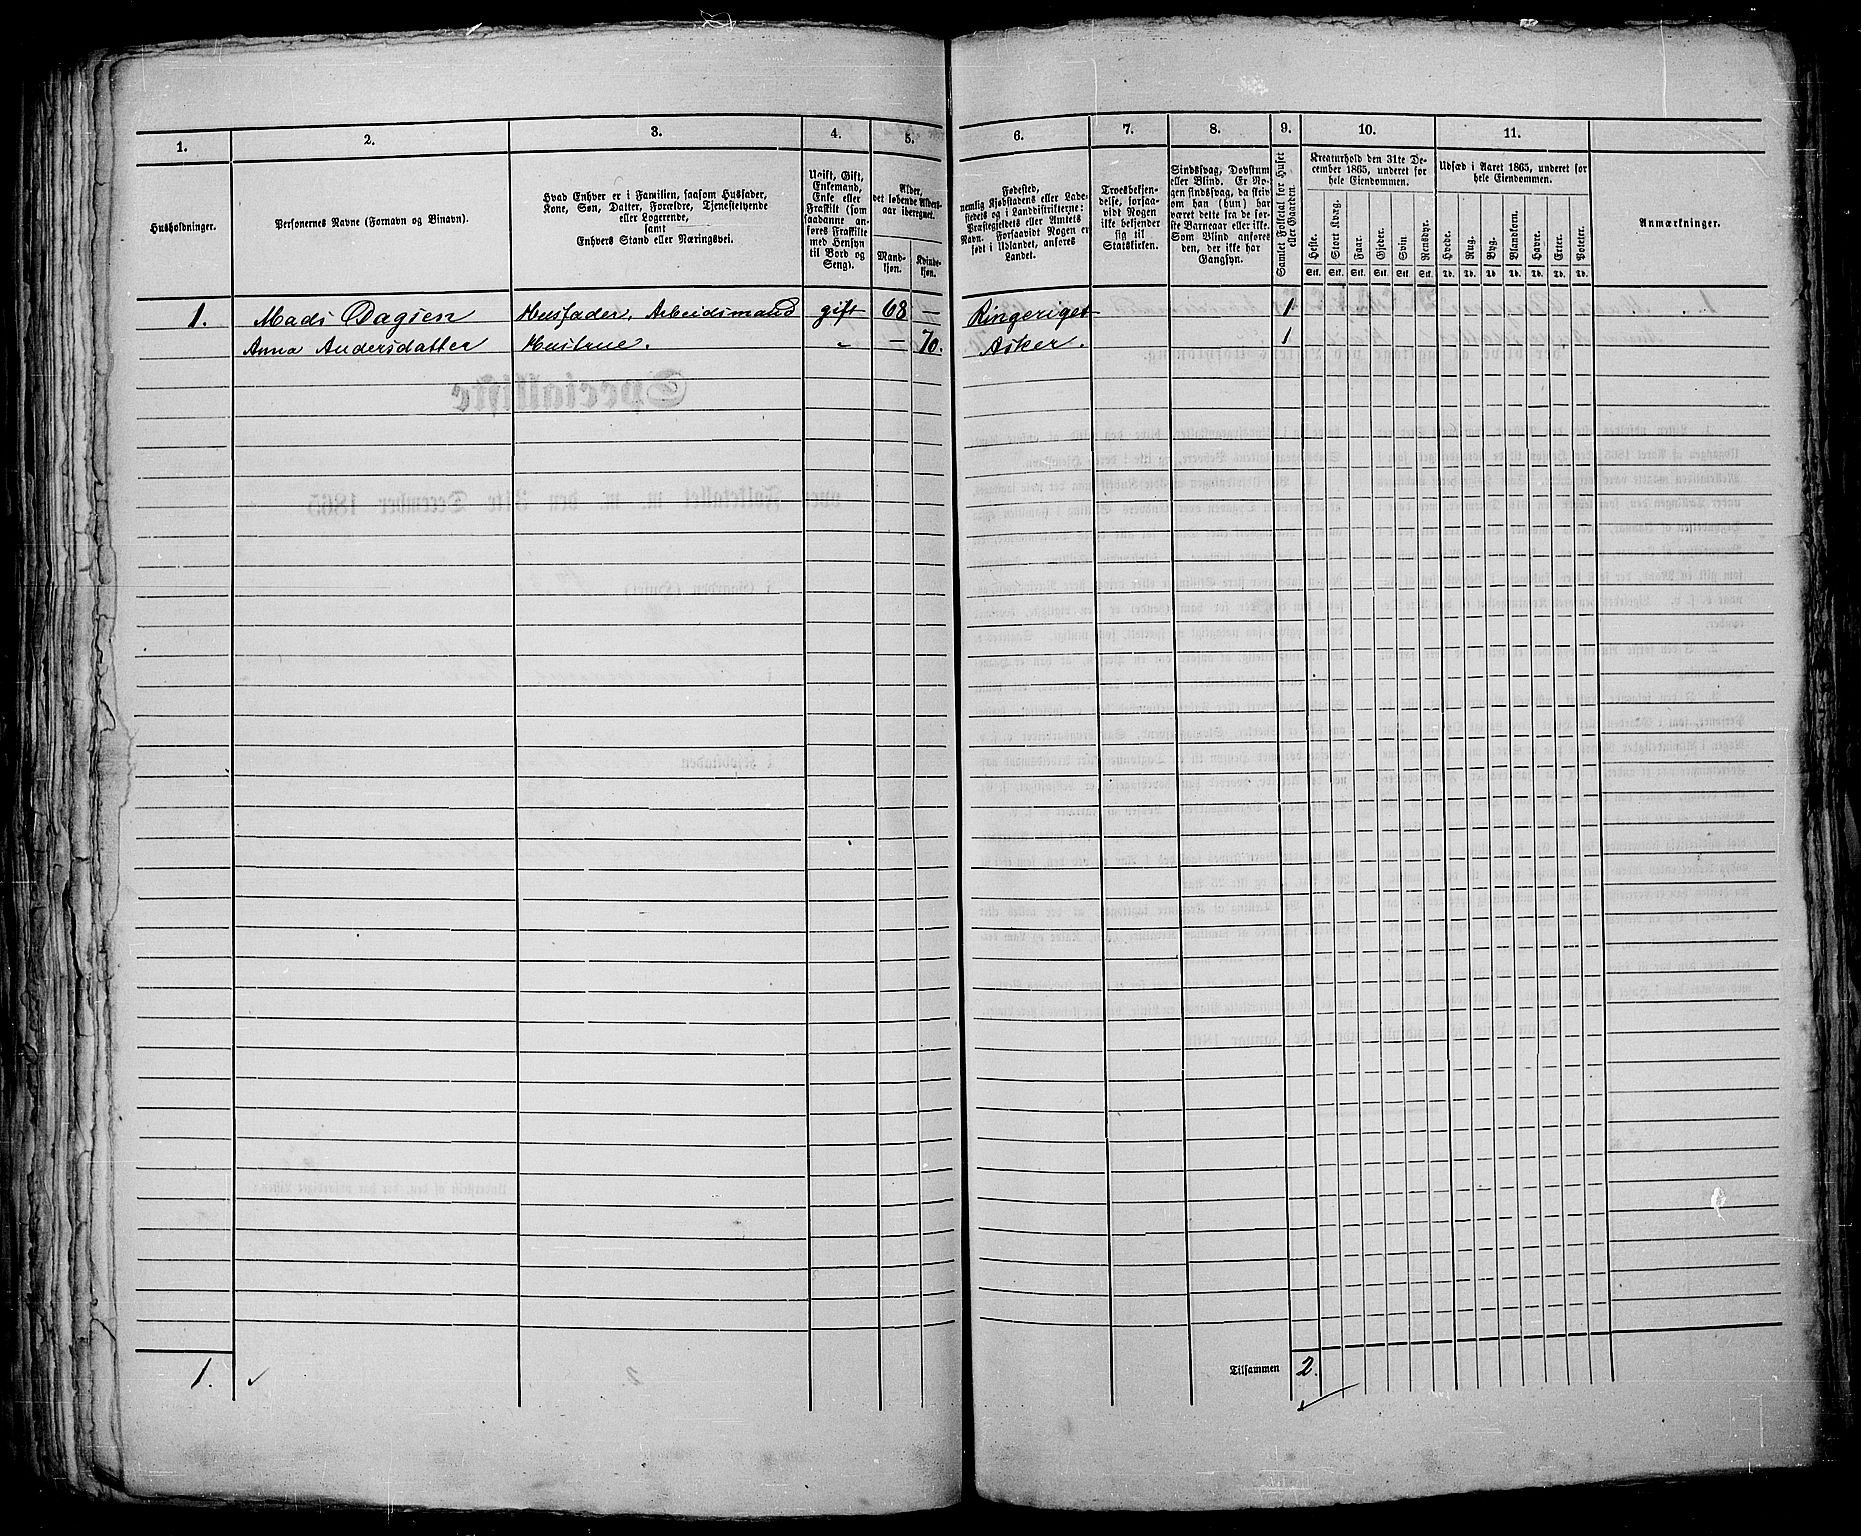 1. 2. 3. 4. 5. 6. 7. 8. 9. 10. 11.
Husholdninger.
Personernes Navne (Fornavn og Binavn).
Hvad Enhver er i Familien, saasom Husfader,
Kone, Søn, Datter, Forældre, Tjenestetyende
eller Logerende,
samt
Enhvers Stand eller Næringsvei.
Ugift, Gift,
Enkemand,
Enke eller
Fraskilt (som
saadanne an-
føres Fraskilte
med Hensyn
til Bord og
Seng).
Alder,
det løbende Alders-
aar iberegnet.
Mand-
kjøn.
Kvinde-
kjøn.
Fødested,
nemlig Kjøbstadens eller Lade-
stedets og i Landdistrikterne:
Præstegjeldets eller Amtets
Navn. Forsaavidt Nogen er
født i Udlandet, anføres
Landet.
Troesbekjen-
delse, forsaa-
vidt Nogen
ikke bekjender
sig til
Statskirken.
Sindssvag, Døvstum
eller Blind. Er No-
gen sindssvag, da skri-
ves om han (hun) har
været dette fra de før-
ste Barneaar eller ikke.
Som Blind anføres
den, der ikke har
Gangsyn.
Samlet Folketal for Huset
eller Gaarden.
Kreaturhold den 31te De-
cember 1865, underet for
hele Eiendommen.
Heste. Stort Kvæg. Faar. Gjeder. Svin Rensdyr.
Stk. Stk. Stk. Stk. Stk. Stk.
Udsæd i Aaret 1865, underet for
hele Eiendommen.
Hvede. Rug. Byg. Blandkorn. Havre. Erter. Poteter.
Td. Td. Td. Td. Td. Td. Td.
Anmærkninger.
1. Mads Dagsen Husfader, Arbeidsmand gift 68 — Ringeriget 1
Anna Andersdatter Hustrue. " — 70. Asker. 1
1.
Tilsammen 2.